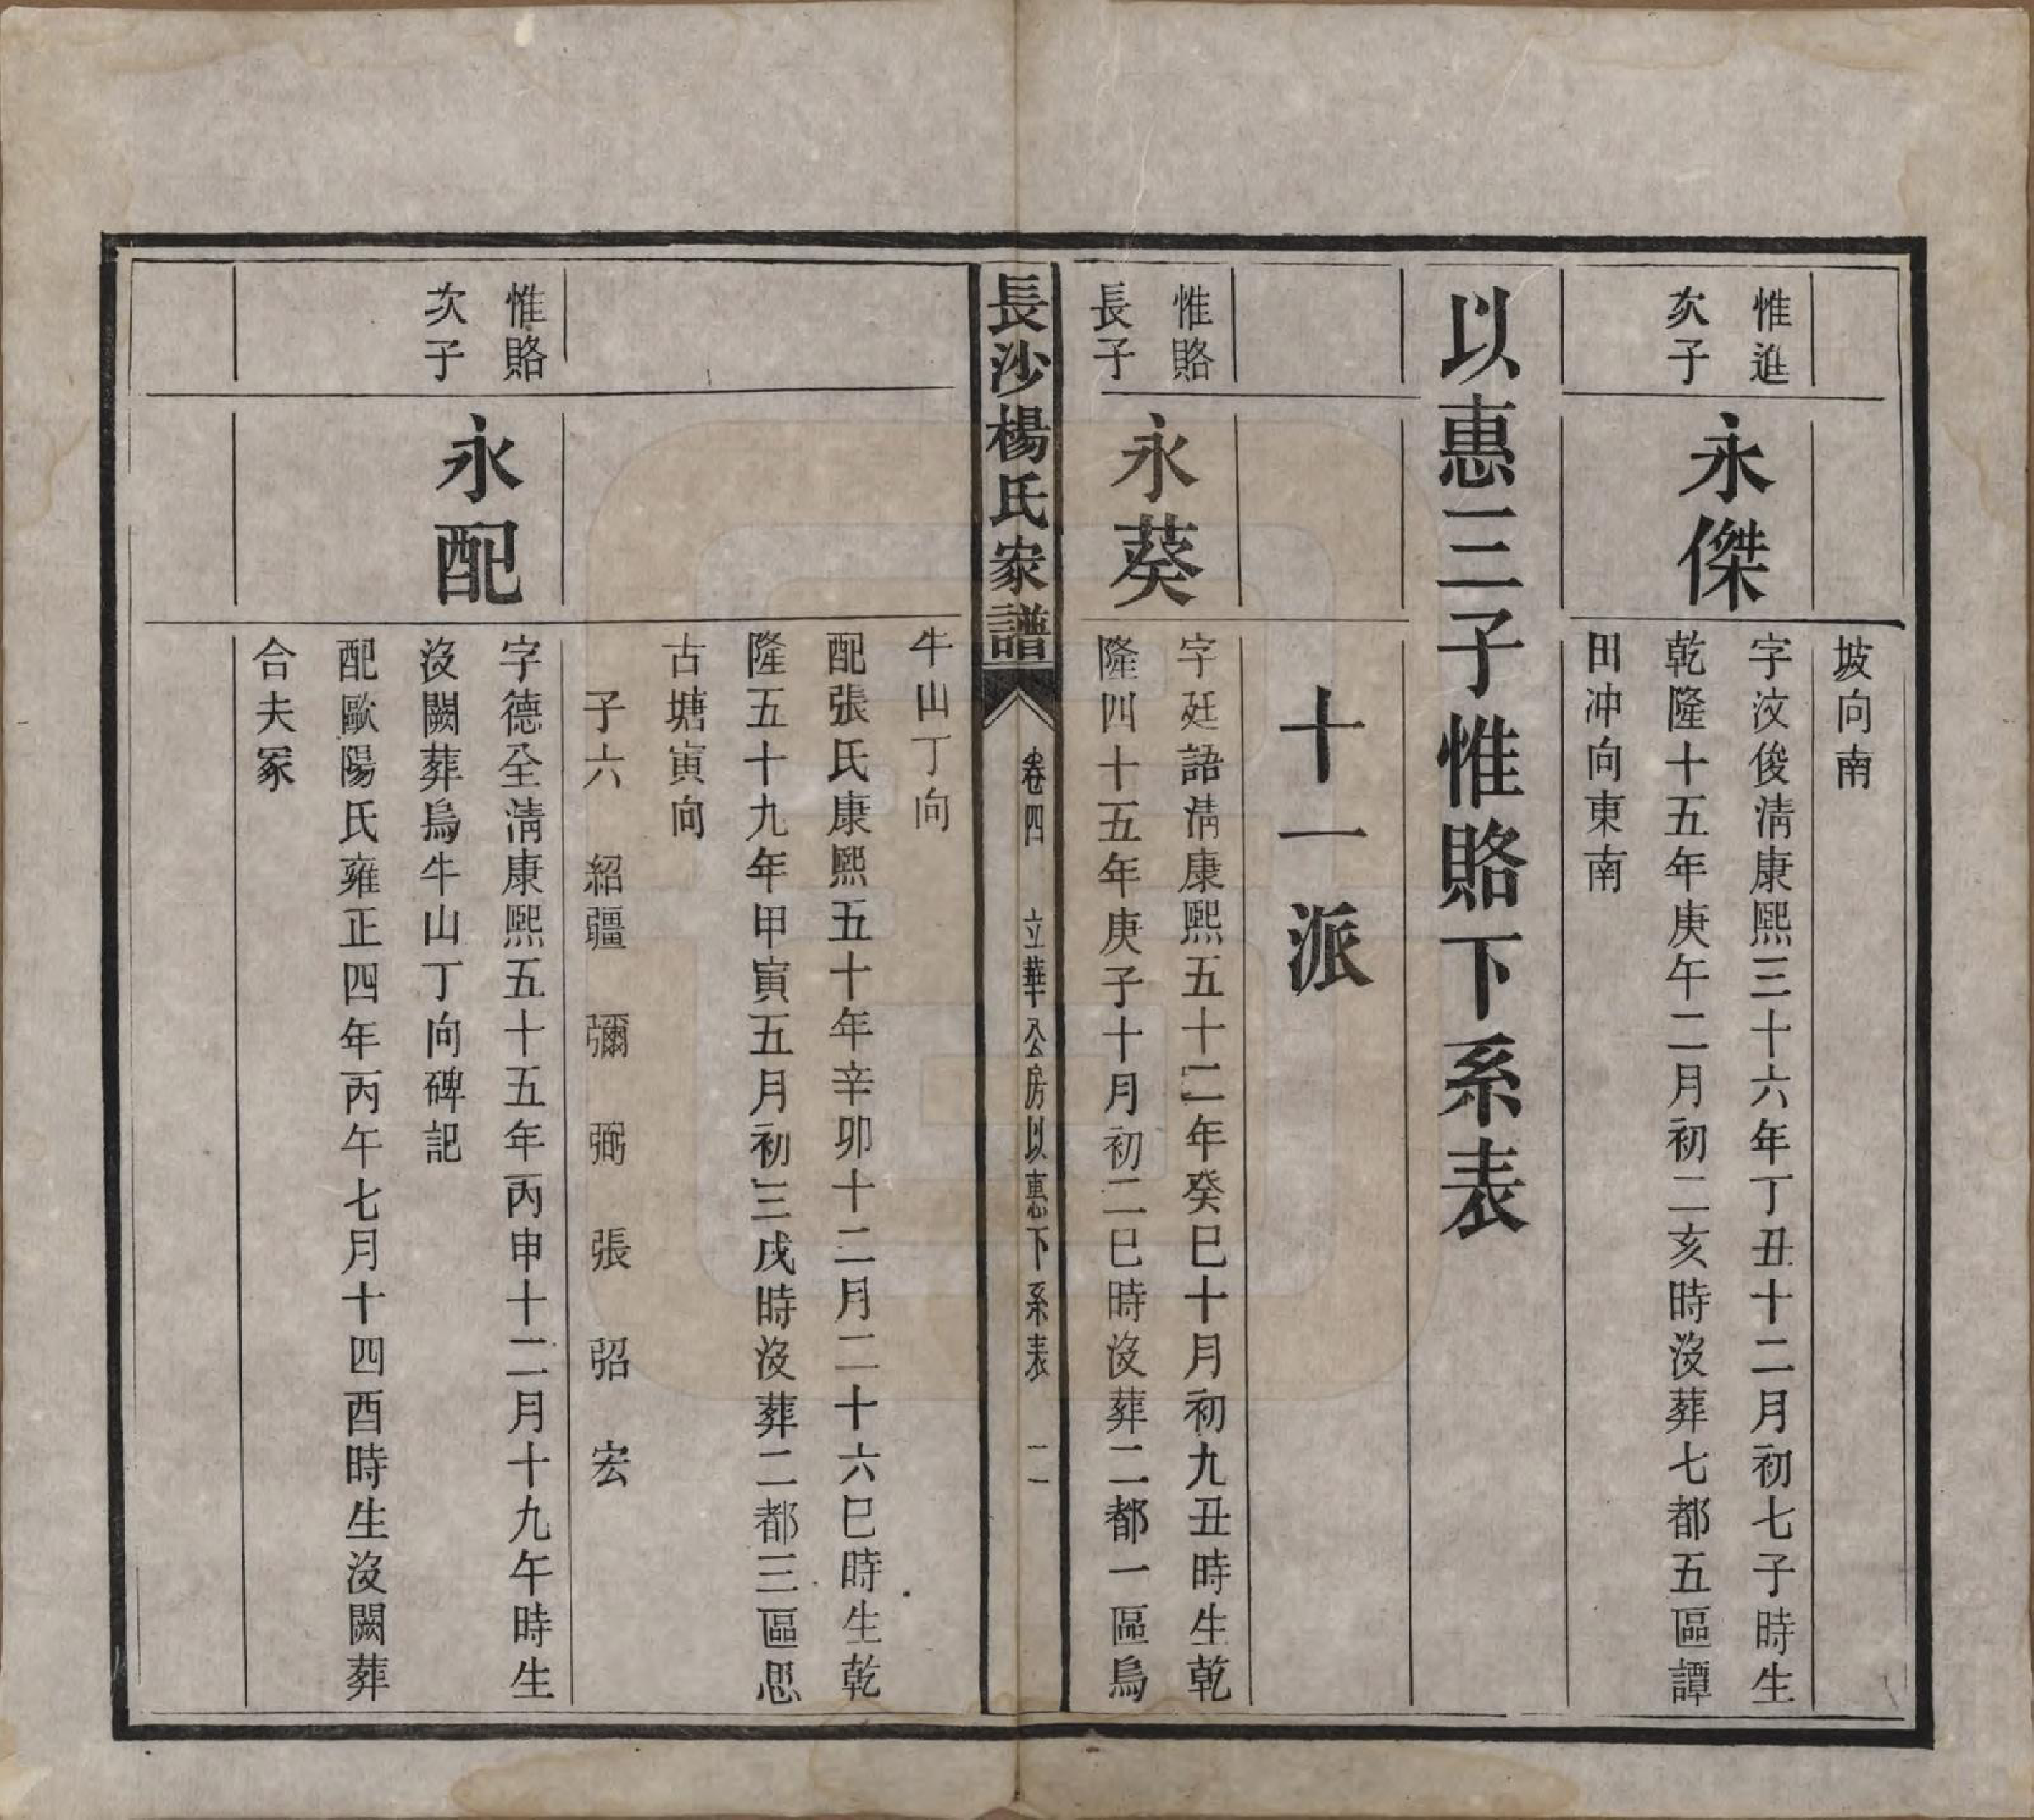 坡向南
惟進
次子
永傑
字汶俊淸康熙三十六年丁丑十二月初七子時生
乾隆十五年庚午二月初二亥時沒葬七都五區譚
田冲向東南
以惠三子惟賂下系表
十一派
惟賂
長子
永葵
字廷語淸康熙五十二年癸巳十月初九丑時生乾
隆四十五年庚子十月初二巳時沒葬二都一區烏
長沙楊氏家譜
卷四
立華公房以惠下系表
二一
牛山丁向
配張氏康熙五十年辛卯十二月二十六巳時生乾
隆五十九年甲寅五月初三戌時沒葬二都三區思
古塘寅向
子六 紹疆 彌 弼 張 弨 宏
惟賂
次子
永配
字德全淸康熙五十五年丙申十二月十九午時生
沒闕葬烏牛山丁向碑記
配歐陽氏雍正四年丙午七月十四酉時生沒闕葬
合夫冢